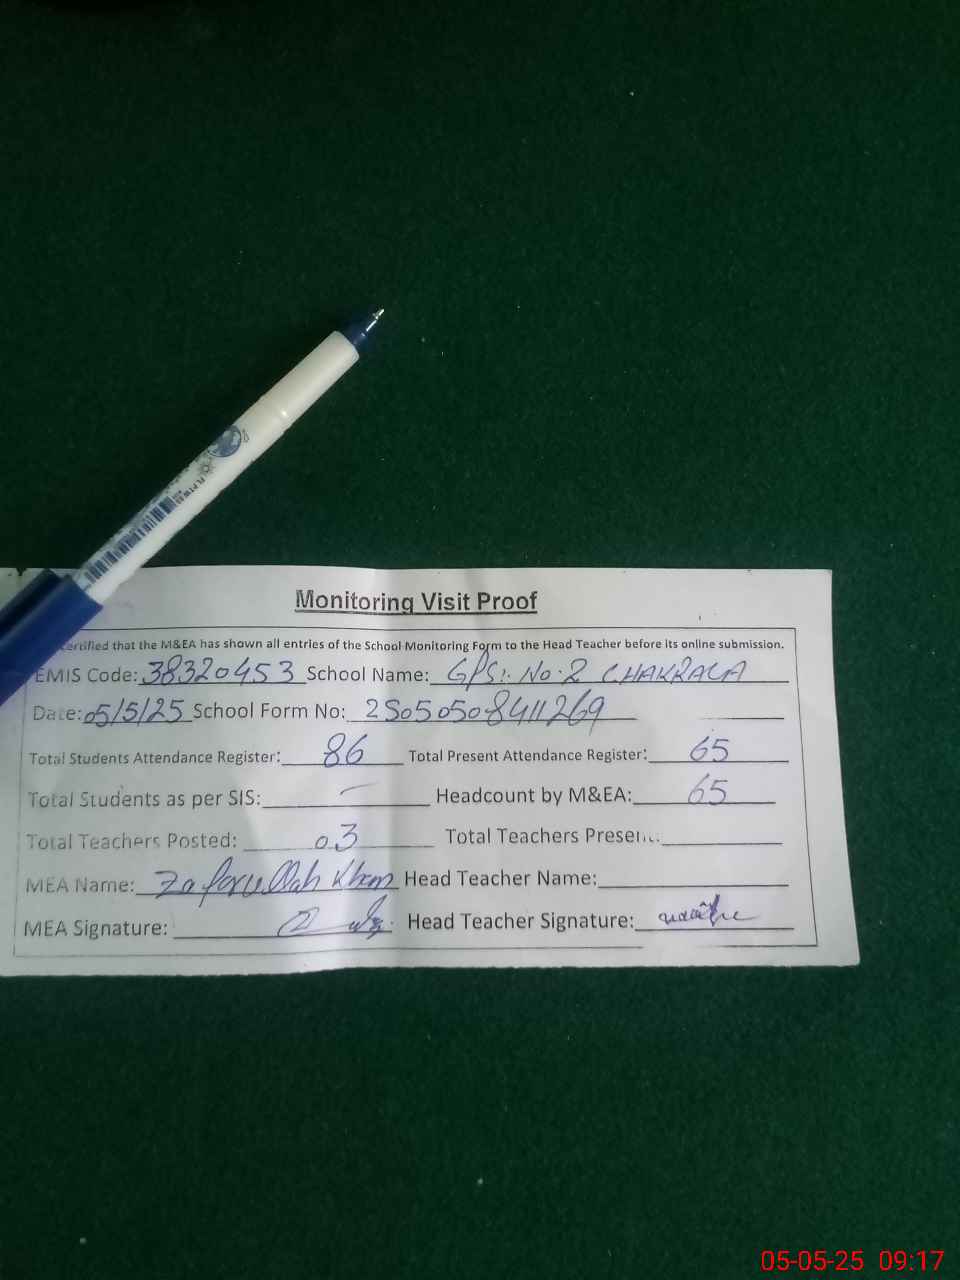 Monitoring Visit Proof
ertified that the M&EA has shown all entries of the School Monitoring Form to the Head Teacher before its online submission.
EMIS Code: 38320453 School Name: GPS: No:2 CHAKRALA
Date: 05/5/25 School Form No: 25050508411269
Total Students Attendance Register: 86 Total Present Attendance Register: 65
Total Students as per SIS: - Headcount by M&EA: 65
Total Teachers Posted: 03 Total Teachers Present:
MEA Name: Zafarullah Khan Head Teacher Name:
MEA Signature: Head Teacher Signature:
05-05-25 09:17